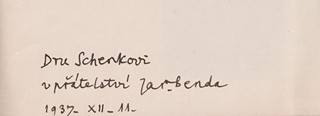 Dru Schenkovi
v přátelství Jar. Benda
1937 - XII - 11 -